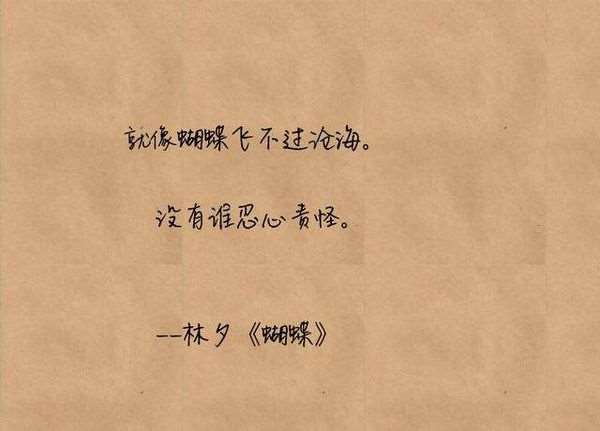 就像蝴蝶飞不过沧海。
没有谁忍心责怪。
--林夕《蝴蝶》